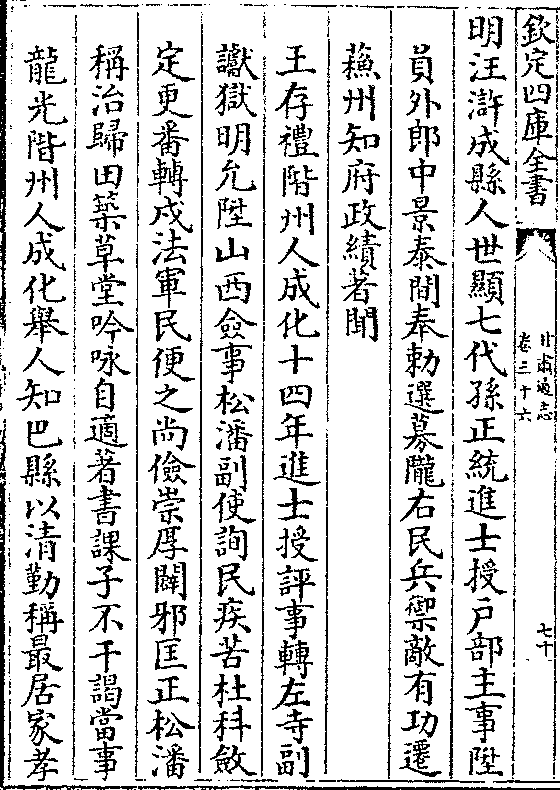 欽定四庫全書
甘肅通志
卷三十六
七十
明汪滸成縣人世顯七代孫正統進士授戶部主事陞
員外郎中景泰間奉勅選募隴右民兵禦敵有功遷
蘓州知府政績著聞
王存禮階州人成化十四年進士授評事轉左寺副
讞獄明允陞山西僉事松潘副使詢民疾苦杜科斂
定更番轉戍法軍民便之尚儉崇厚闢邪匡正松潘
稱治歸田築草堂吟咏自適著書課子不干謁當事
龍光階州人成化舉人知巴縣以清勤稱最居家孝